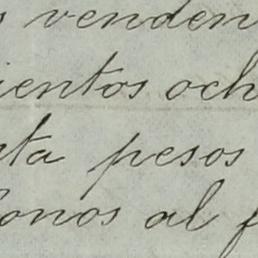 s venden
ientos och
ta pesos
onos al f